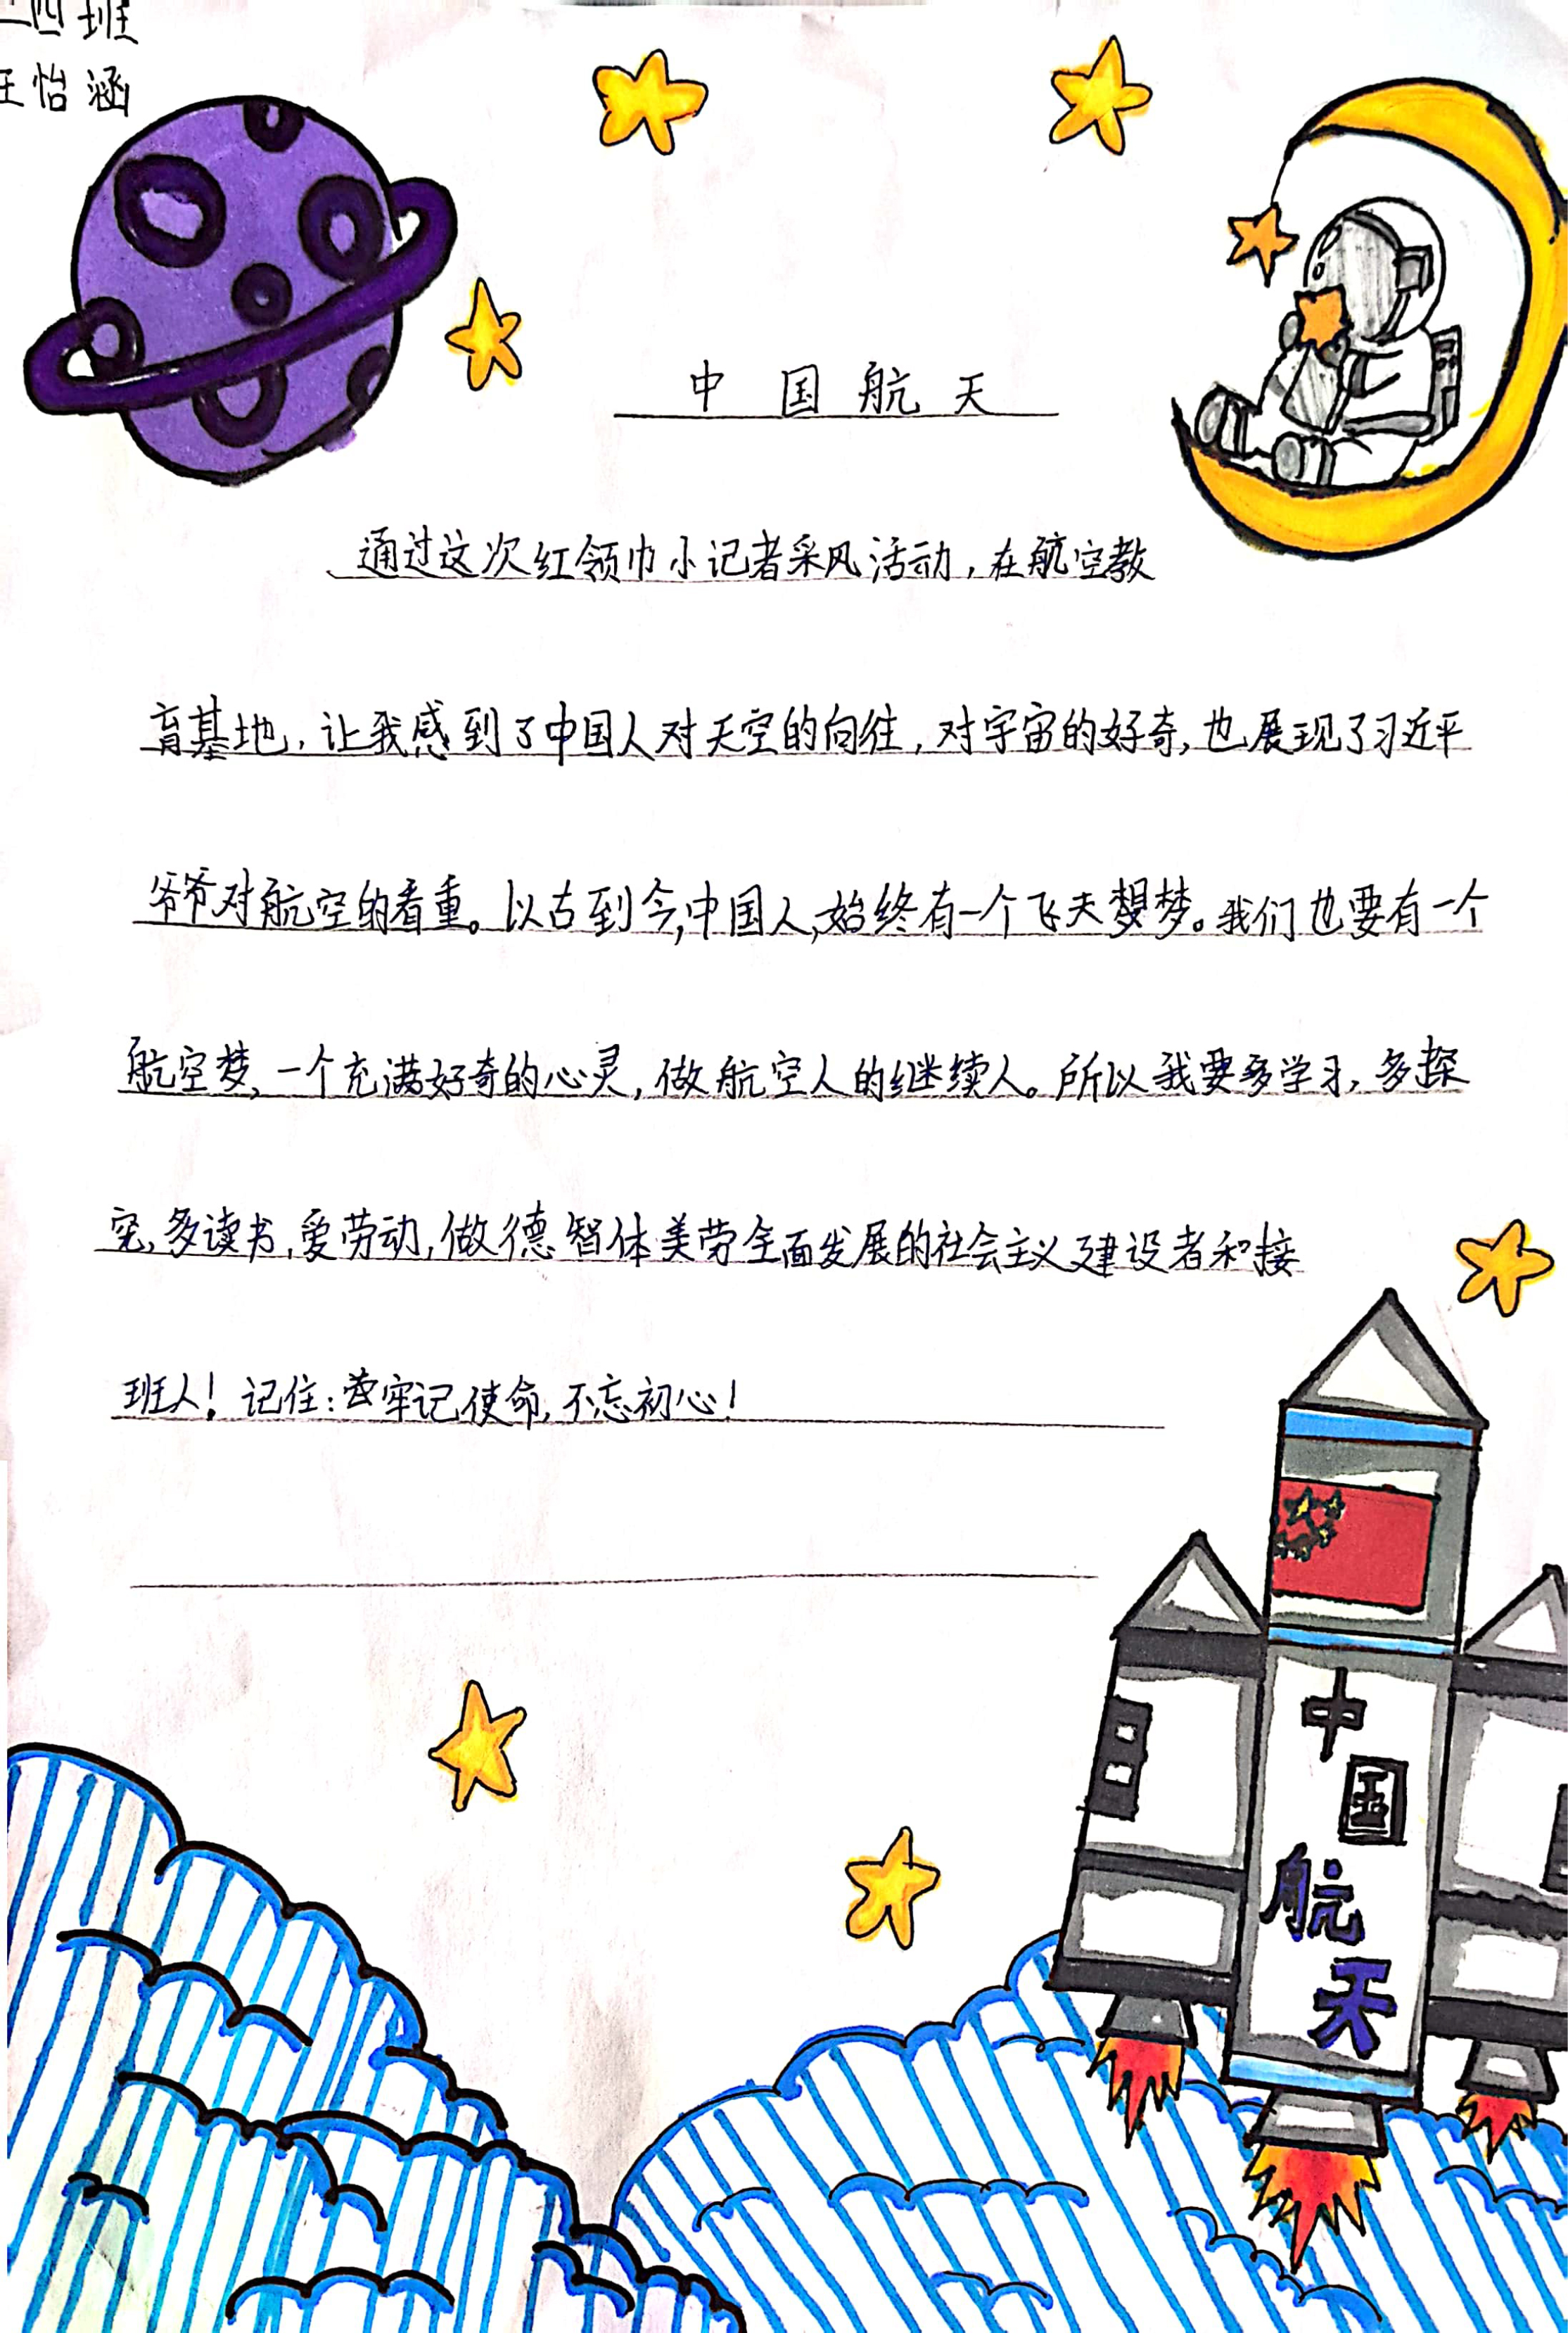 四班
怡涵
中国航天
通过这次红领巾小记者采风活动，在航空教
育基地，让我感到了中国人对天空的向往，对宇宙的好奇，也展现了习近平
爷爷对航空的看重。以古到今，中国人，始终有一个飞天梦。我们也要有一个
航空梦，一个充满好奇的心灵，做航空人的继续人。所以我要多学习，多探
究，多读书，爱劳动，做德智体美劳全面发展的社会主义建设者和接
班人！记住：牢记使命，不忘初心！
中
国
航
天